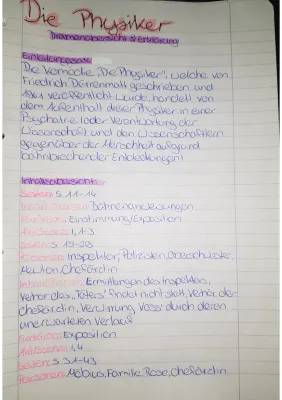 Die Physiker
Dramenübersicht & Erklärung
Einleitungssatz:
Die Komödie "Die Physiker", welche von
Friedrich Dürrenmatt geschrieben und
1961 veröffentlicht wurde, handelt von
dem Aufenthalt dieser Physiker in einer
Psychatrie &oder Verantwortung der
Wissenschaft und den Wissenschaftlern
gegenüber der Menschheit aufgrund
bahnbrechender Entdeckungen!
Inhaltsübersicht:
Seiten: S. 11-14
Bühnenanweisungen
Funktion: Einstimmung/Exposition
1, 1-3
Seiten: S. 15-28
Personen: Inspektor, Polizisten, Oberschwester,
Newton, Chefärztin
Ermittlungen des Inspektors,
Verhör des "Täters" findet nicht statt, Verhör der
Chefärztin, Verwirrung Voss' durch deren
unerwarteten Verlauf
Funktion: Exposition
1, 4
Seiten: S. 31-43
Personen: Möbius, Familie Rose, Chefärztin